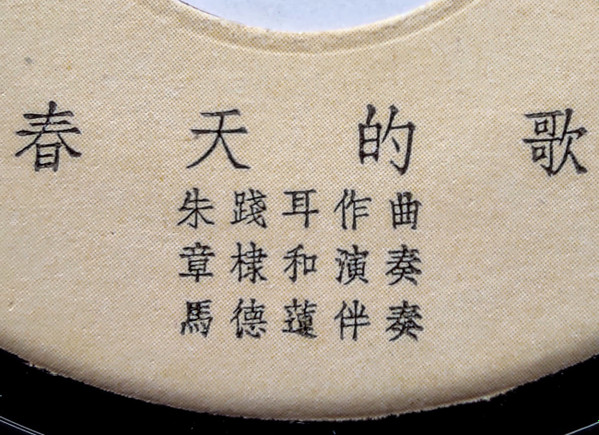 春天的歌
朱踐耳作曲
章棣和演奏
馬德蓮伴奏